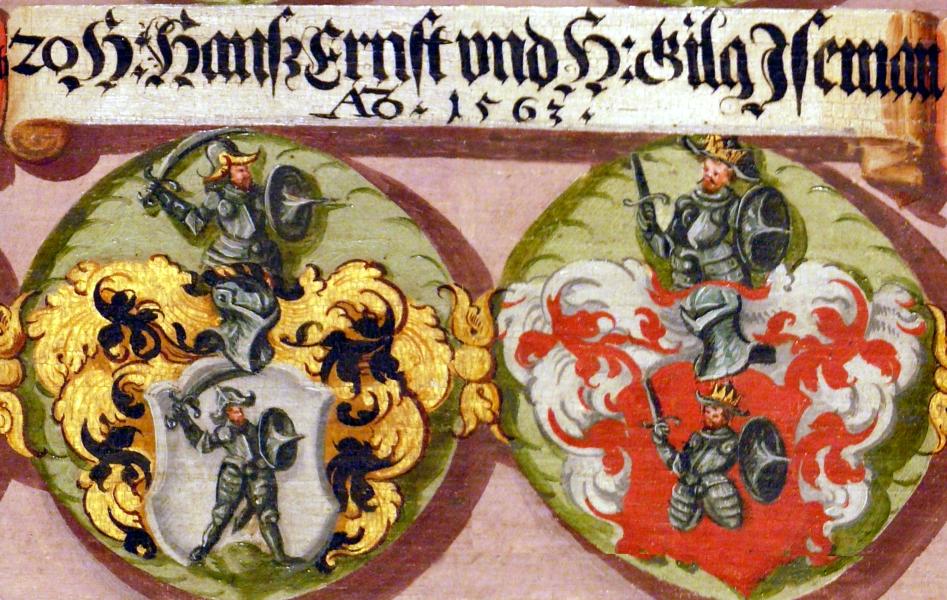 20 H: Hanß Ernst vnd H: Gilg Jseman
Aō · 1563 ·